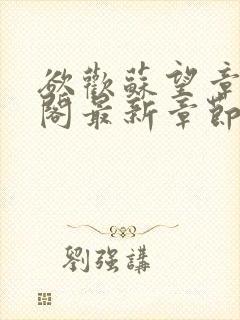 欲歡蘇望章
閣最新章節
劉强講